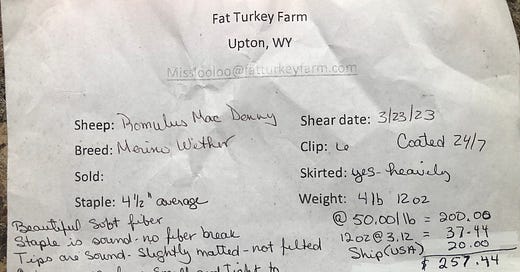 Fat Turkey Farm
Upton, WY
Missfooloo@fatturkeyfarm.com
Sheep: Romulus Mac Denny Shear date: 3/23/23
Breed: Merino Wether Clip: 6 Coated 24/7
Sold: Skirted: yes - heavily
Staple: 4 1/2" average Weight: 4 lb 12 oz
Beautiful Soft fiber @ 50.00/lb = 200.00
Staple is sound - no fiber break 12 oz @ 3.12 = 37.44
Tips are Sound - Slightly matted - not felted Ship (USA) 20.00
$ 257.44